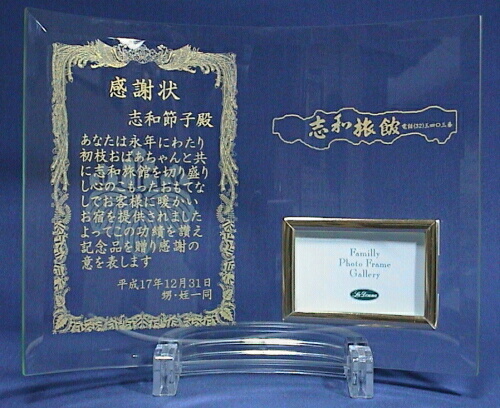 感謝状
志和節子殿
あなたは永年にわたり
初枝おばあちゃんと共
に志和旅館を切り盛り
し心のこもったおもてな
しでお客様に暖かい
お宿を提供されました
よってこの功績を讃え
記念品を贈り感謝の
意を表します
平成17年12月31日
甥・姪一同
志和旅館
電話(32)三四〇三番
Familly
Photo Frame
Gallery